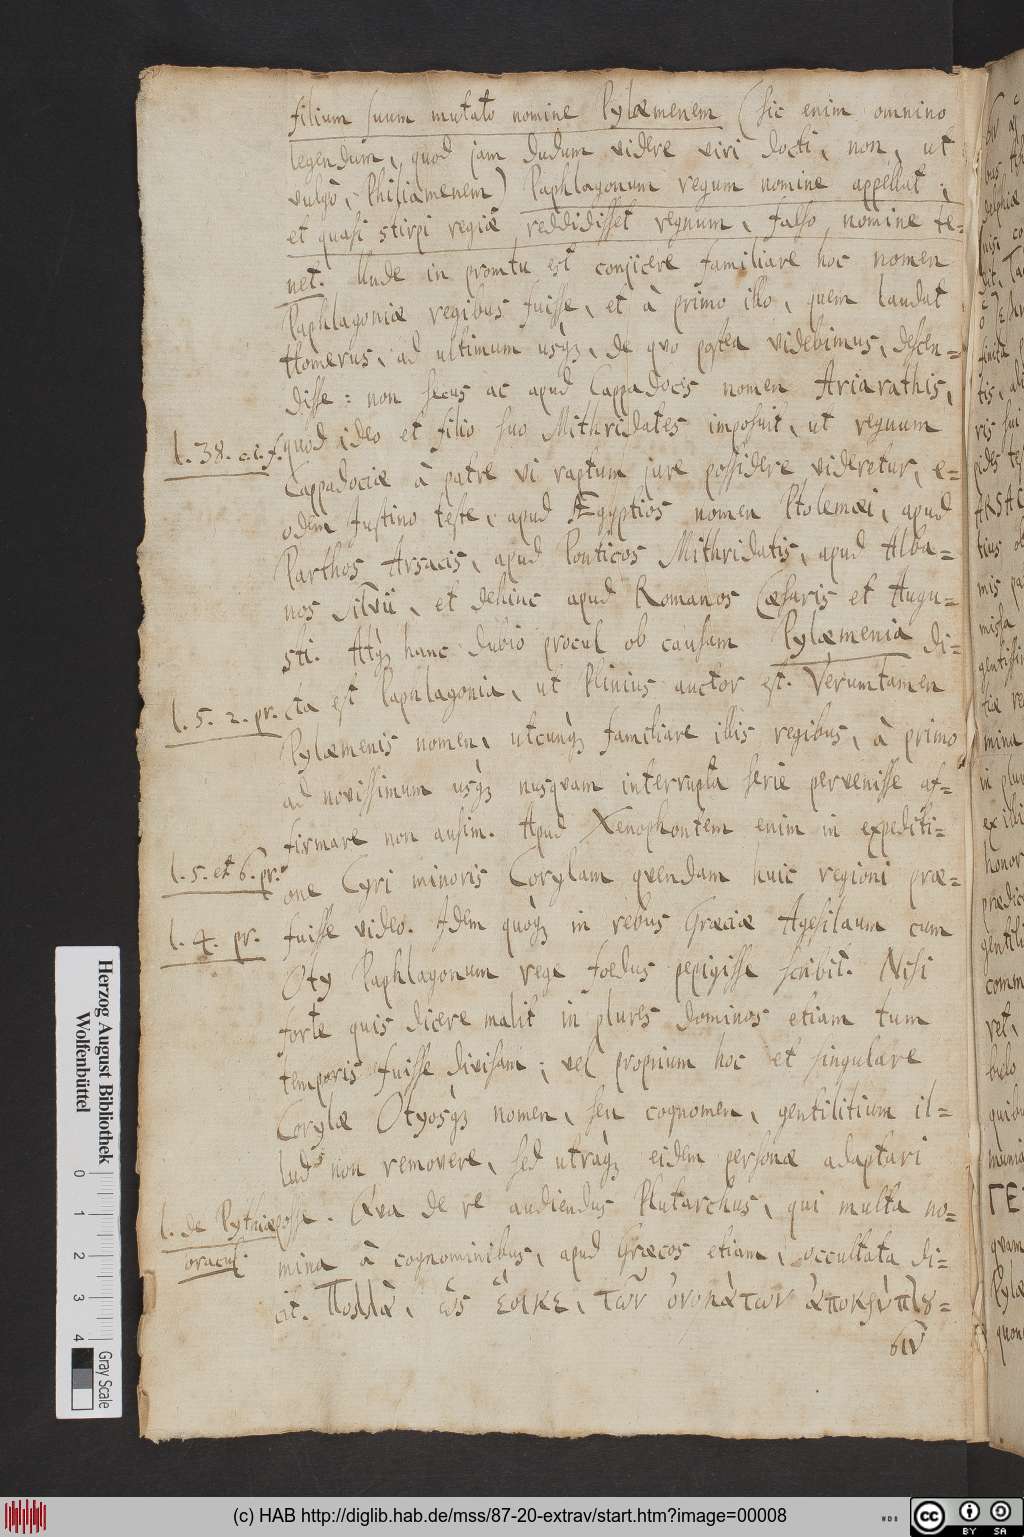 filium suum mutato nomine Pylæmenem (sic enim omnino
legendum, quod jam dudum videre viri docti, non, ut
vulgò, Philæmenem) Paphlagonum regum nomine appellat;
et quasi stirpi regiæ reddidisset regnum, falso nomine te=
net. Unde in promtu est conjicere familiare hoc nomen
Paphlagoniæ regibus fuisse, et à primo illo, quem laudat
Homerus, ad ultimum usq́ꝫ, de quo postea videbimus, descen=
disse: non secus ac apud Cappadocis nomen Ariarathis,
l. 38. c. 1. f. quod ideo et filio suo Mithridates imposuit, ut regnum
Cappadociæ à patre vi raptum jure possidere videretur, e=
odem Justino teste, apud Ægyptios nomen Ptolemæi, apud
Parthos Arsacis, apud Ponticos Mithridatis, apud Alba=
nos Silvii, et dehinc apud Romanos Cæsaris et Augu=
sti. Atq́ꝫ hanc dubio procul ob causam Pylæmenia di=
l. 5. 2. pr. cta est Paphlagonia, ut Plinius auctor est. Veruntamen
Pylæmenis nomen, utcunq́ꝫ familiare illis regibus, à primo
ad novissimum usq́ꝫ nusqvam interrupta serie pervenisse af=
firmare non ausim. Apud Xenophontem enim in expediti=
l. 5. et 6. pr. one Cyri minoris Corylam qvendam huic regioni præ=
l. 4. pr. fuisse video. Idem quoq́ꝫ in rebus Græciæ Agesilaum cum
Oty Paphlagonum rege foedus pepigisse scribit. Nisi
forte quis dicere malit in plures dominos etiam tum
temporis fuisse divisam; vel proprium hoc et singulare
Corylæ Otyosq́ꝫ nomen, seu cognomen, gentilitium il=
lud non removere, sed utraq́ꝫ eidem personæ adaptari
l. de Pythiæ posse. Qva de re audiendus Plutarchus, qui multa no=
oracul. mina à cognominibus, apud Græcos etiam, occultata di=
cit. Πολλὰ, ὡς ἔοικε, τῶν ὀνομάτων ἀποκρύπτου=
σιν
Herzog August Bibliothek
Wolfenbüttel
0 1 2 3 4
Gray Scale
(c) HAB http://diglib.hab.de/mss/87-20-extrav/start.htm?image=00008
cc BY SA